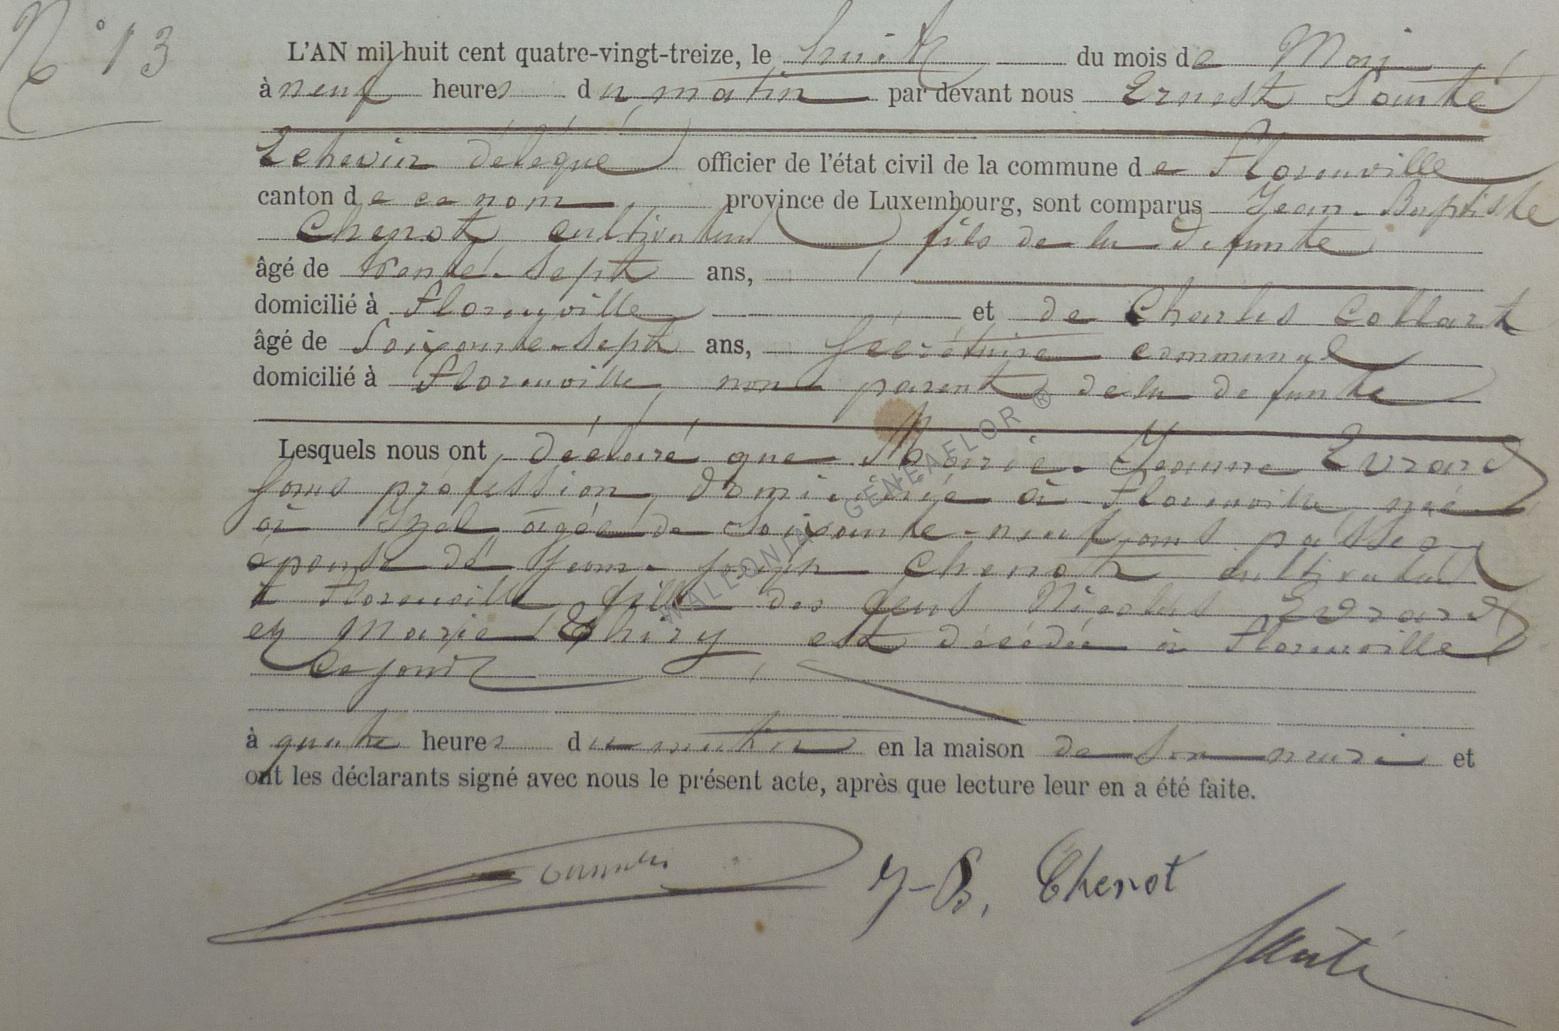 N° 13
L'AN mil huit cent quatre-vingt-treize, le huit du mois de Mai
à neuf heures du matin par devant nous Ernest Santé
Echevin délégué officier de l'état civil de la commune de Florenville
canton de ce nom province de Luxembourg, sont comparus Jean-Baptiste
Chenot, cultivateur fils de la défunte
âgé de trente-sept ans,
domicilié à Florenville et de Charles Collart
âgé de Soixante-sept ans, Sécrétaire communal
domicilié à Florenville, non parent de la défunte
Lesquels nous ont déclaré que Marie-Jeanne Evrard
sans profession, domiciliée à Florenville, née
à Izel, âgée de Soixante-neuf ans passés
épouse de Jean-Joseph Chenot cultivateur
à Florenville, fille des feus Nicolas Evrard
et Marie Thiry est décédée à Florenville
ce jourd
à quatre heures du matin en la maison de son mari et
ont les déclarants signé avec nous le présent acte, après que lecture leur en a été faite.
J-B, Chenot
Santé
WALLONIA GÉNÉAFLOR ®